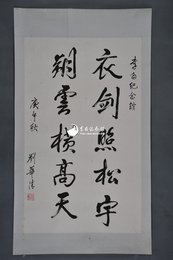 李白纪念馆
衣剑照松宇
翔雲横高天
庚午秋
刘华清